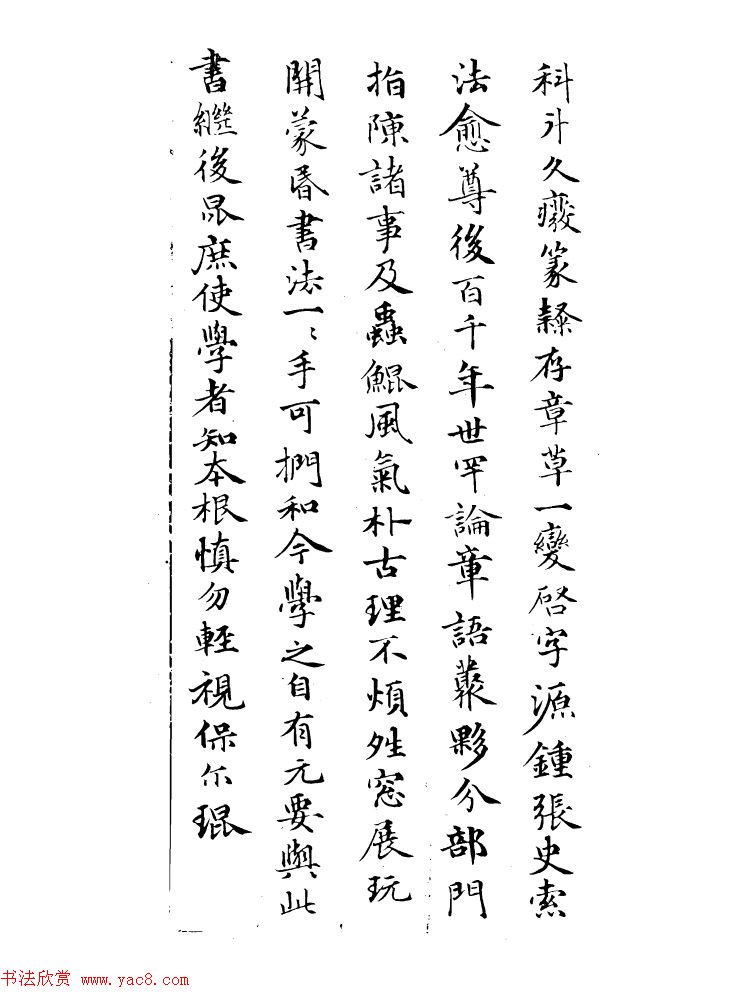 科斗久癈篆隸存章草一變啓字源鍾張史索
法愈尊後百千年世罕論章語叢夥分部門
指陳諸事及蟲鯤風氣朴古理不煩姓窓展玩
開蒙昏書法一〻手可捫和今學之自有元要與此
書繼後昆庶使學者知本根慎勿輊視保尒琨
书法欣赏 www.yac8.com